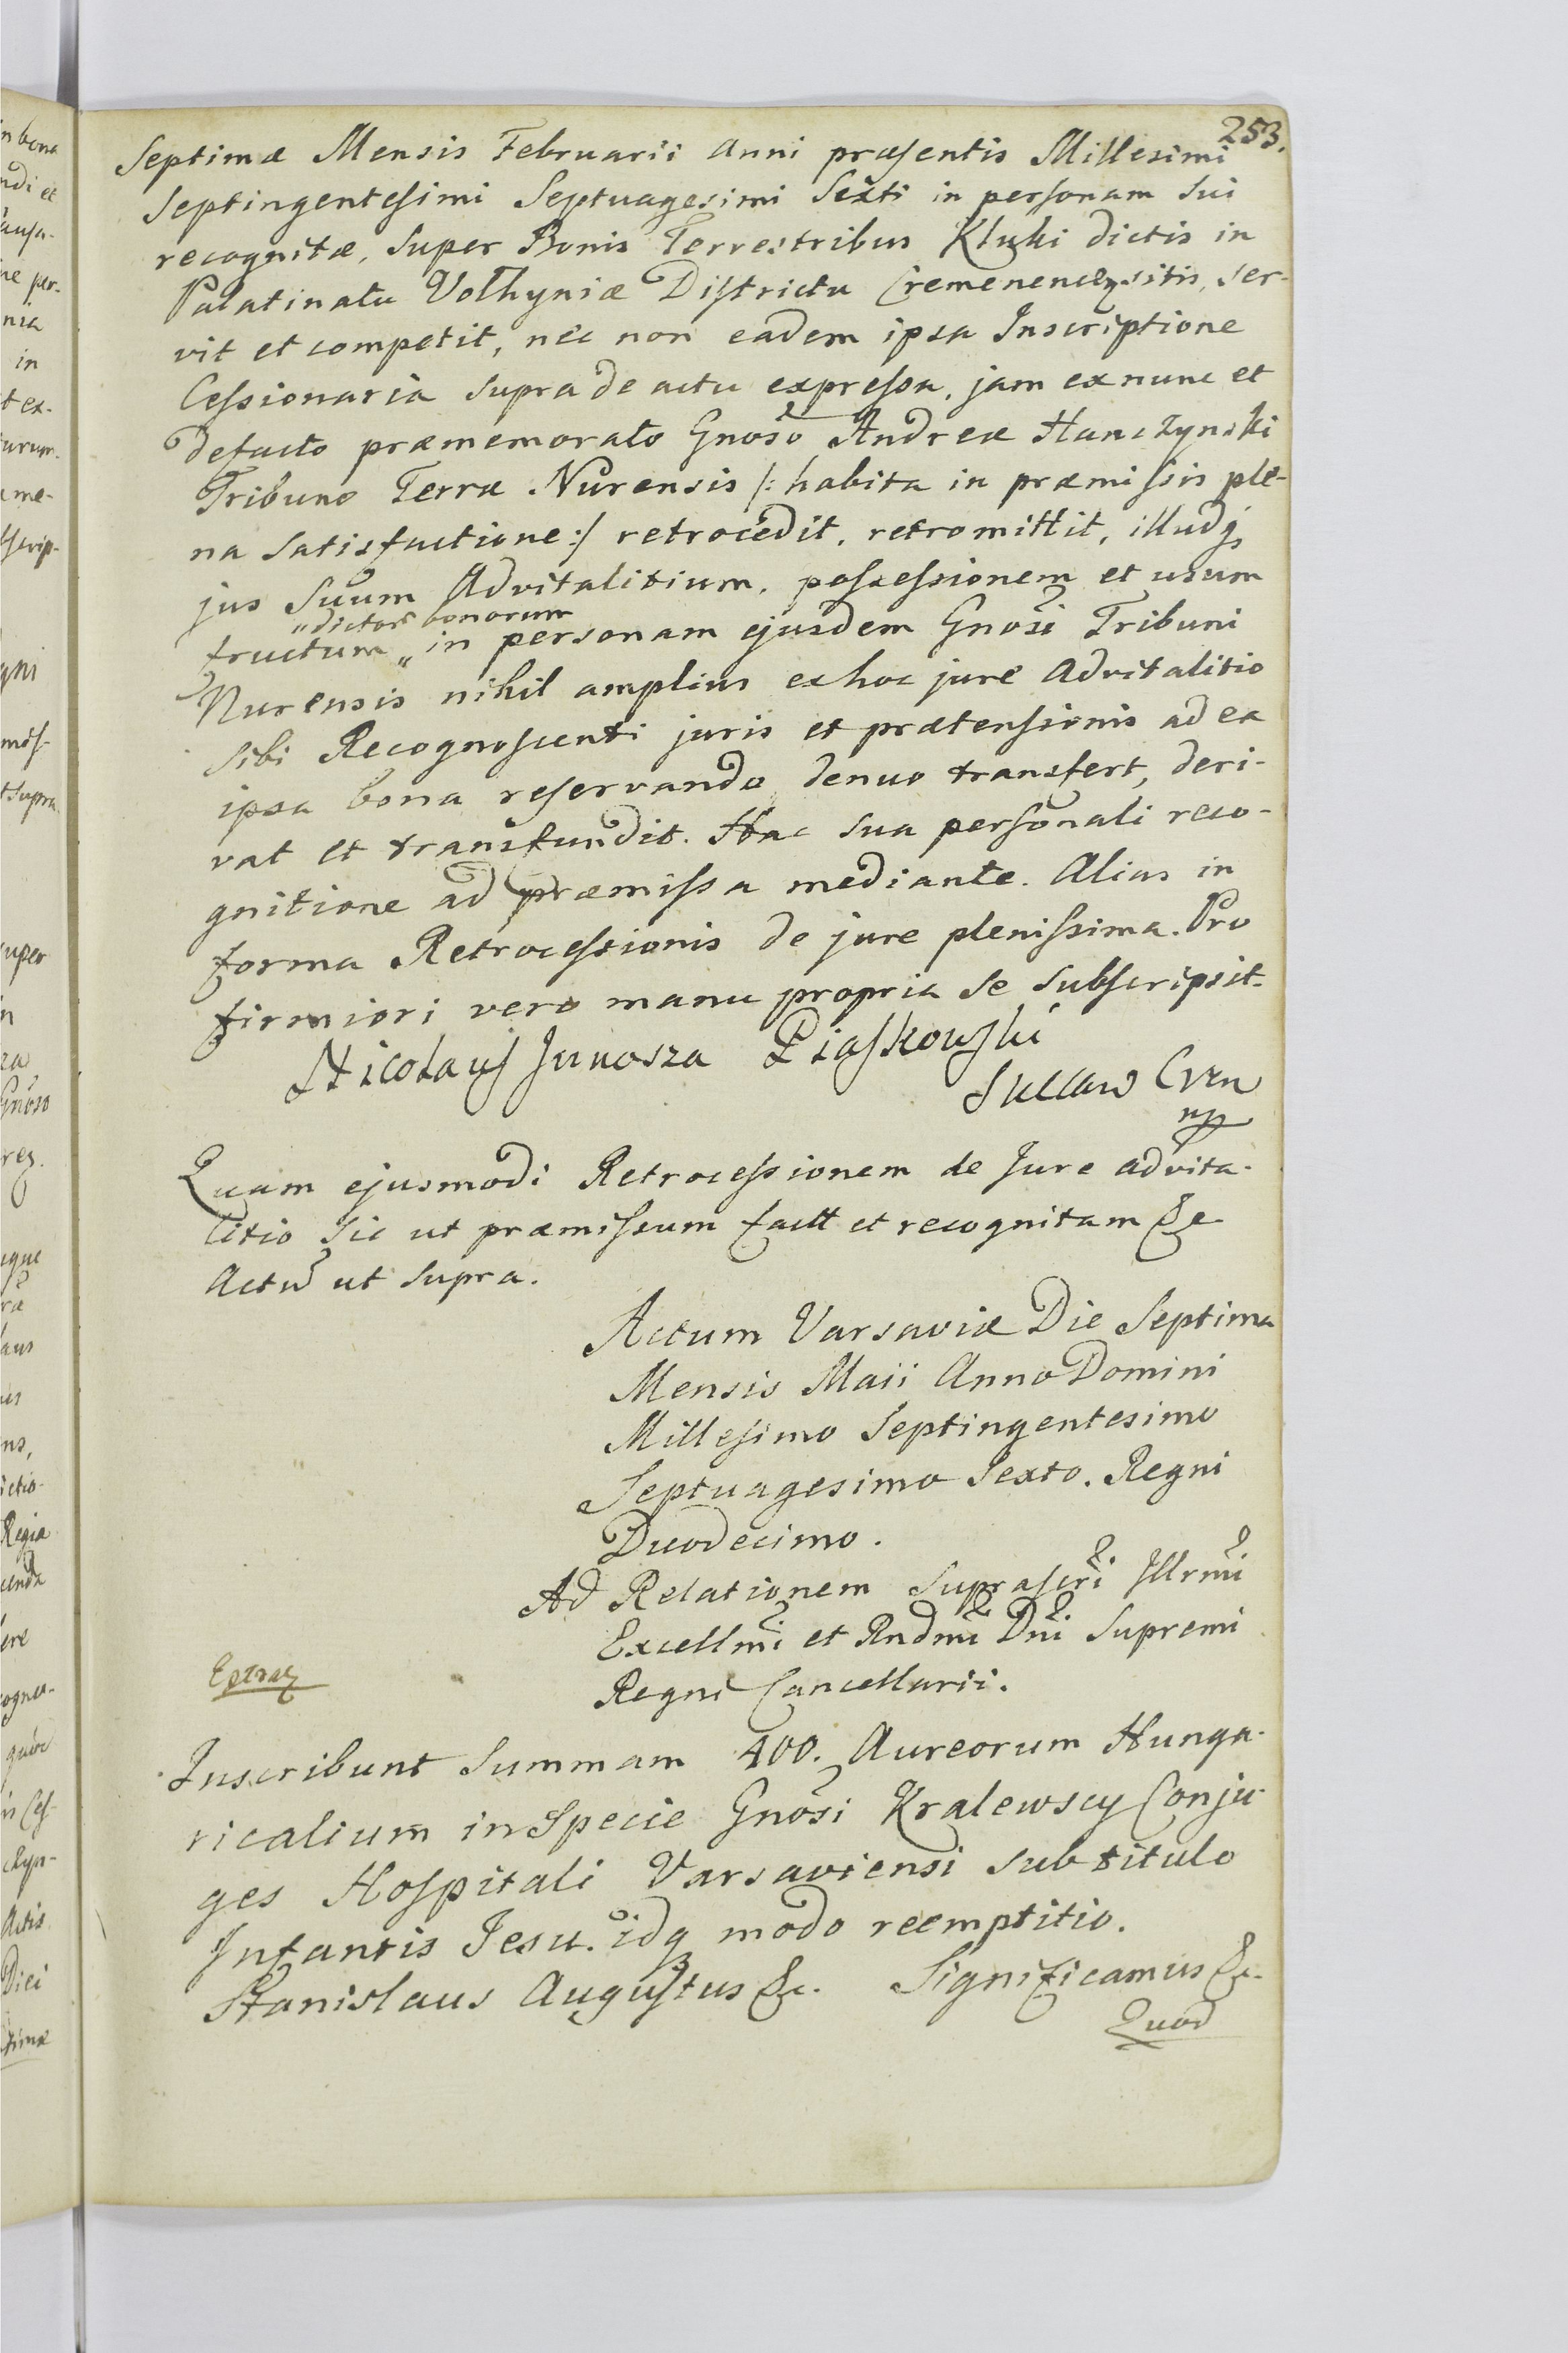 253.
Septimæ Mensis Februarii Anni præsentis Millesimi
Septingentesimi Septuagesimi Sexti in personam sui
recognitæ, super Bonis Terrestribus Kluki dictis in
Palatinatu Volhyniæ Districtu Cremenen sitis, ser-
vit et competit, nec non eadem ipsa Inscriptione
Cessionaria supra de actu expressa, jam ex nunc et
defacto præmemorato Gnoso Andreæ Hanczynski
Tribuno Terræ Nurensis /: habita in præmissis ple-
na satisfactione :/ retrocedit, retromittit, illudq
jus suum Advitalitium, possessionem et usum
„dictor bonorum
fructum „ in personam ejusdem Gnosi Tribuni
Nurensis nihil amplius ex hoc jure Advitalitio
sibi Recognoscenti juris et prætensionis ad ea
ipsa bona reservando denuo transfert, deri-
vat et transfundit. Hac sua personali reco-
gnitione ad præmissa mediante. Alias in
forma Retrocessionis de jure plenissima. Pro
firmiori vero manu propria se subscripsit.
Nicolaus Junosza Piaskowski
Succam Crzn
mp
Quam ejusmodi Retrocessionem de Jure advita-
litio sic ut præmissum factt et recognitam &c
Actu ut supra.
Actum Varsaviæ Die Septima
Mensis Maii Anno Domini
Millesimo Septingentesimo
Septuagesimo Sexto. Regni
Duodecimo.
Ad Relationem suprascri Illrmi
Excellmi et Rndmi Dni Supremi
Regni Cancellarii.
Inscribunt Summam 400. Aureorum Hunga-
ricalium in Specie Gnosi Kralewscy Conju-
ges Hospitali Varsaviensi sub titulo
Infantis Jesu. idq modo reemptitio.
Stanislaus Augustus &c. Significamus &c.
Quod